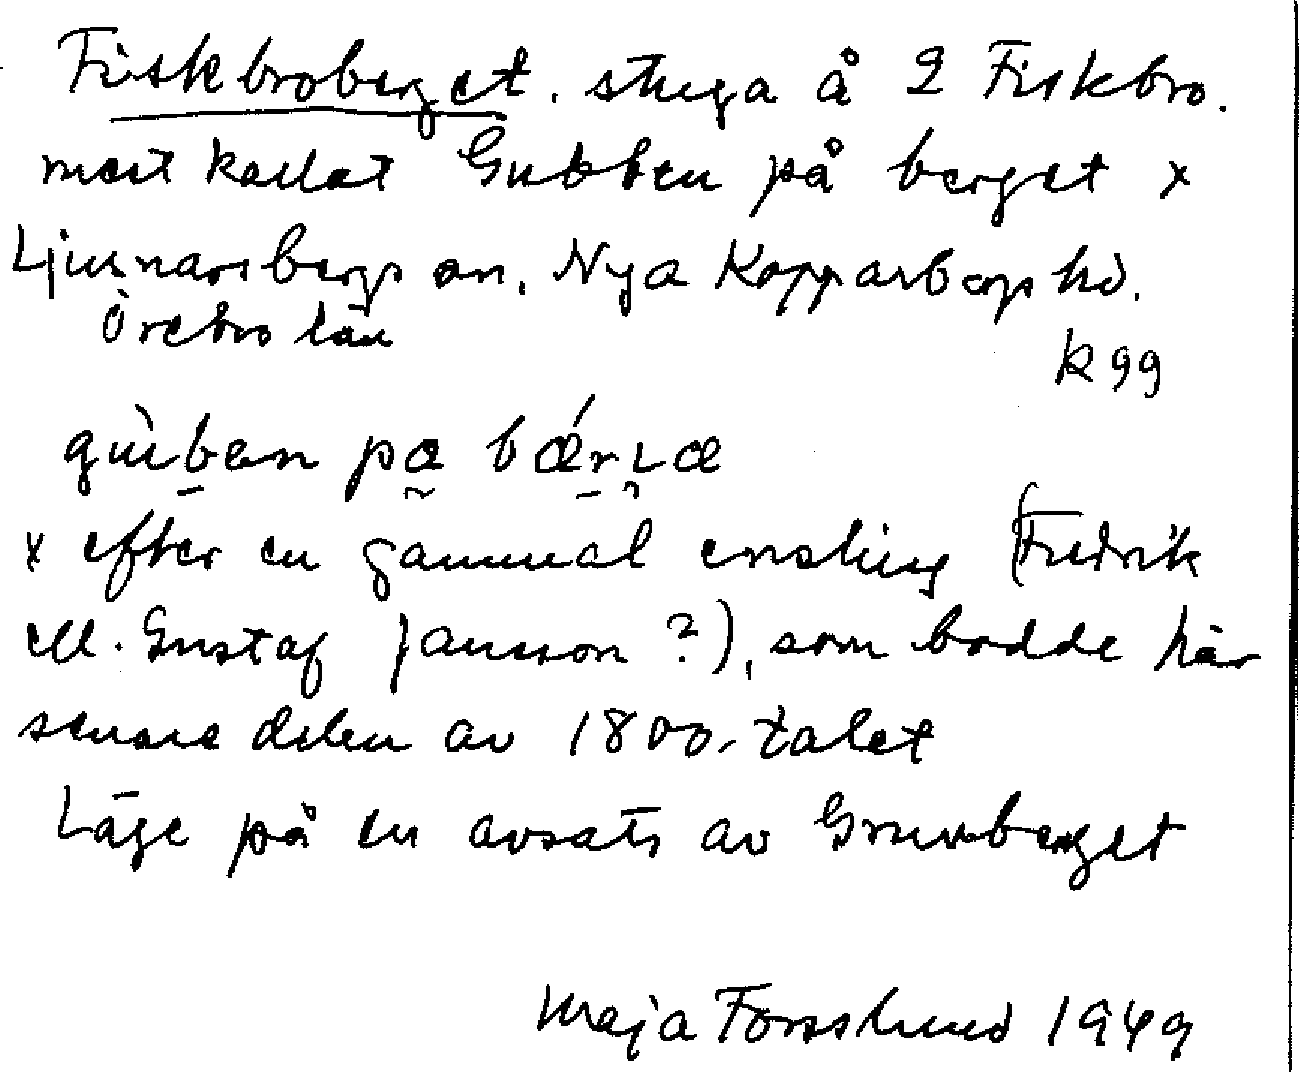 Fiskbroberget. stuga å 2 Fiskbro.
mest kallat Gubben på berget x
Ljusnarsbergs sn. Nya Kopparbergs hd.
Örebro län
k 99
gùbæn pa bǽrɩæ
x efter en gammal enstling (Fredrik
ell. Gustaf Jansson ?), som bodde här
senare delen av 1800-talet
Läge på en avsats av Gruvberget
Maja Forsslund 1949